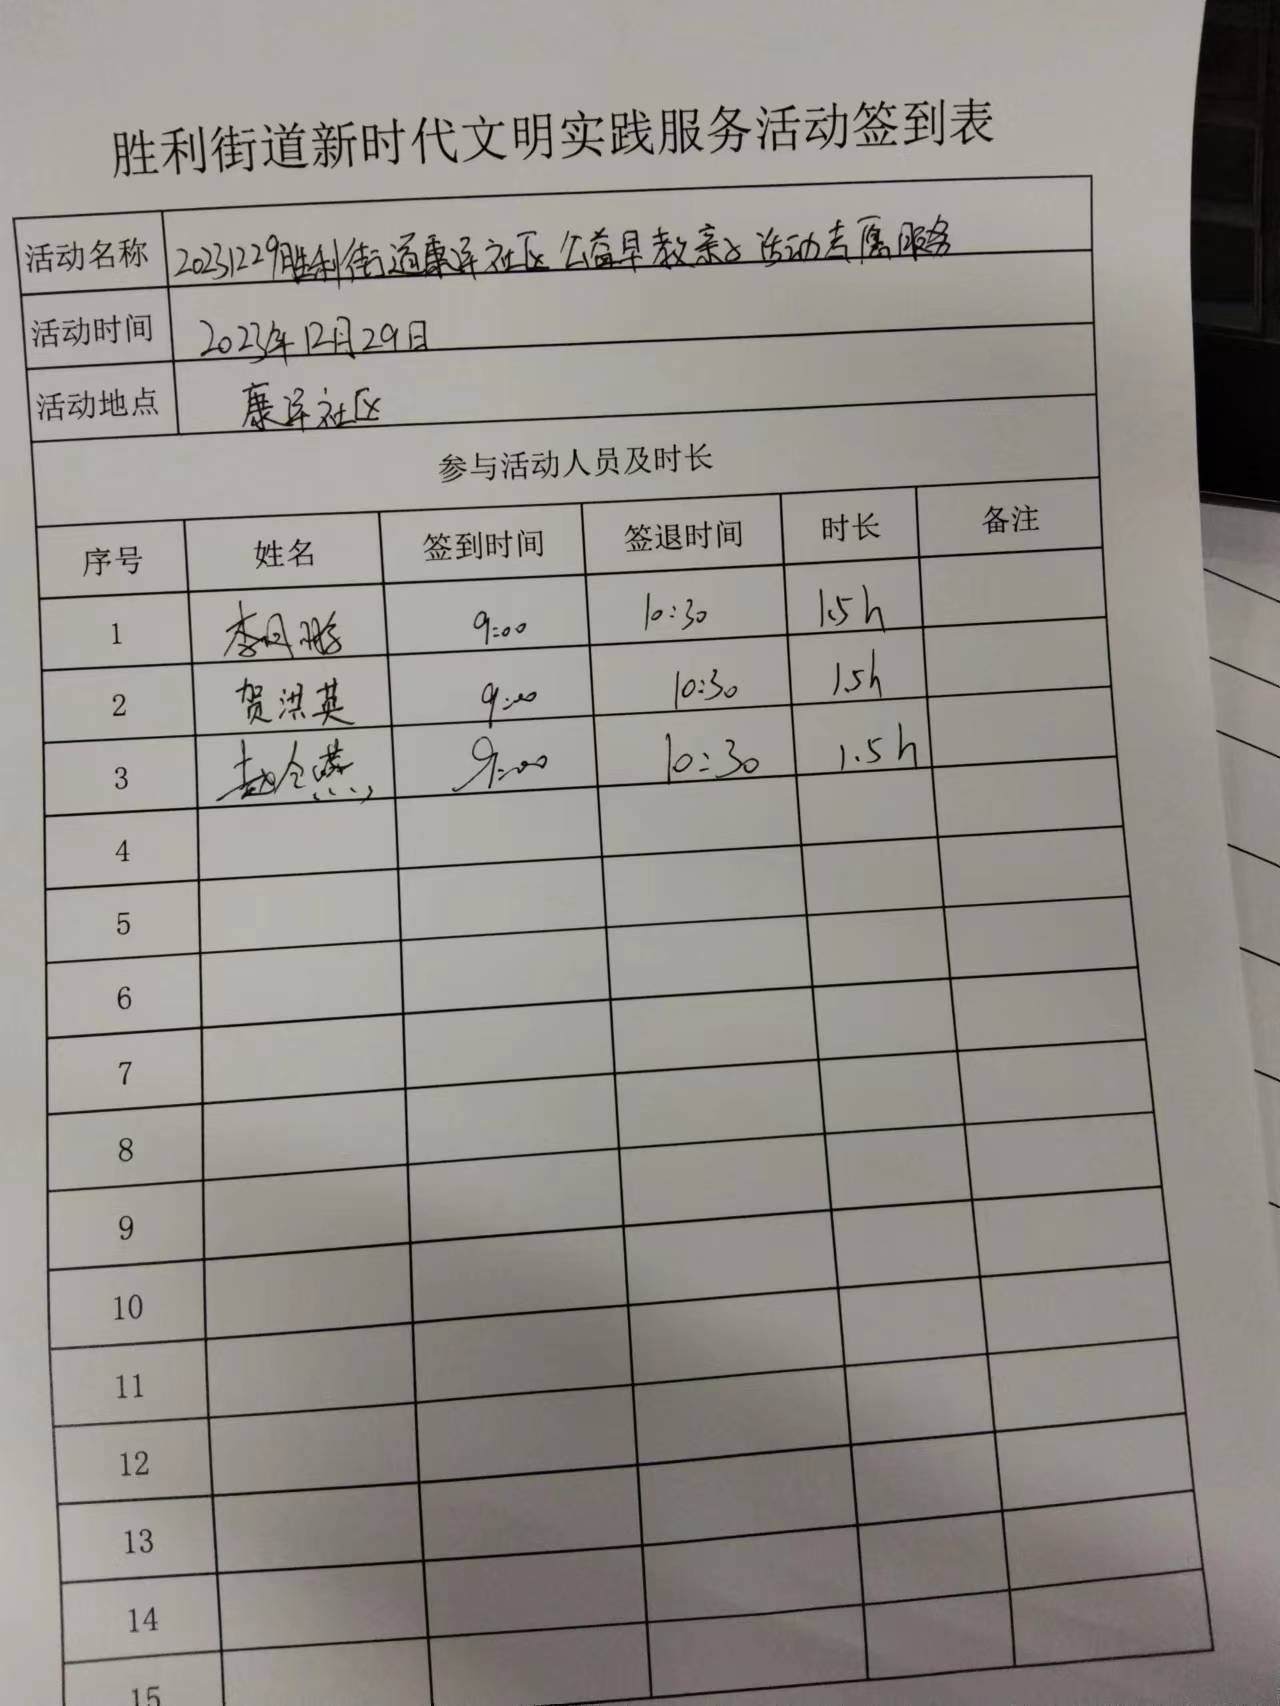 胜利街道新时代文明实践服务活动签到表
活动名称 20231229胜利街道康泽社区公益早教亲子活动志愿服务
活动时间 2023年12月29日
活动地点 康泽社区
参与活动人员及时长
序号 姓名 签到时间 签退时间 时长 备注
1 李丹 9:00 10:30 1.5h
2 贺洪英 9:00 10:30 1.5h
3 赵金燕 9:00 10:30 1.5h
4
5
6
7
8
9
10
11
12
13
14
15